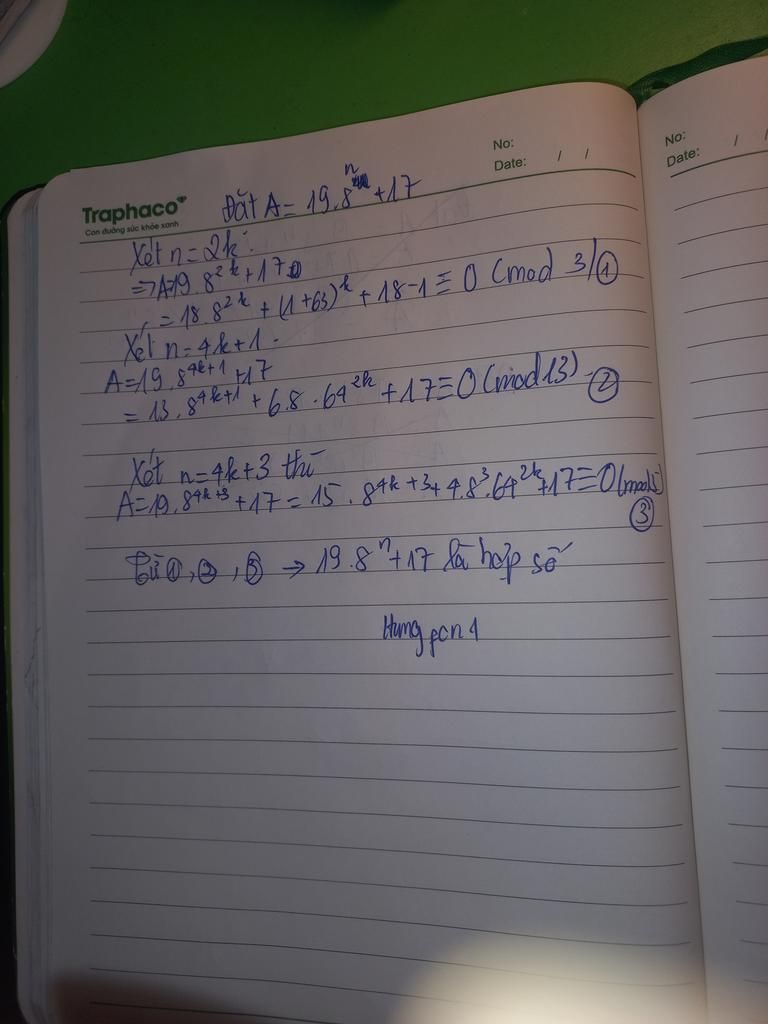 No:
Date: / /
No:
Date: / /
Traphaco
Con đường sức khỏe xanh
Đặt A = 19.8^n + 17
Xét n = 2k.
=> A=19.8^2k + 17
= 18.8^2k + (1+63)^k + 18-1 ≡ 0 (mod 3) ①
Xét n = 4k+1.
A=19.8^4k+1 +17
= 13.8^4k+1 + 6.8.64^2k + 17 ≡ 0 (mod 13) ②
Xét n=4k+3 thì
A=19.8^4k+3 + 17 = 15.8^4k+3 + 4.8^3.64^2k + 17 ≡ 0 (mod 5)
③
Từ ①, ②, ③ → 19.8^n + 17 là hợp số